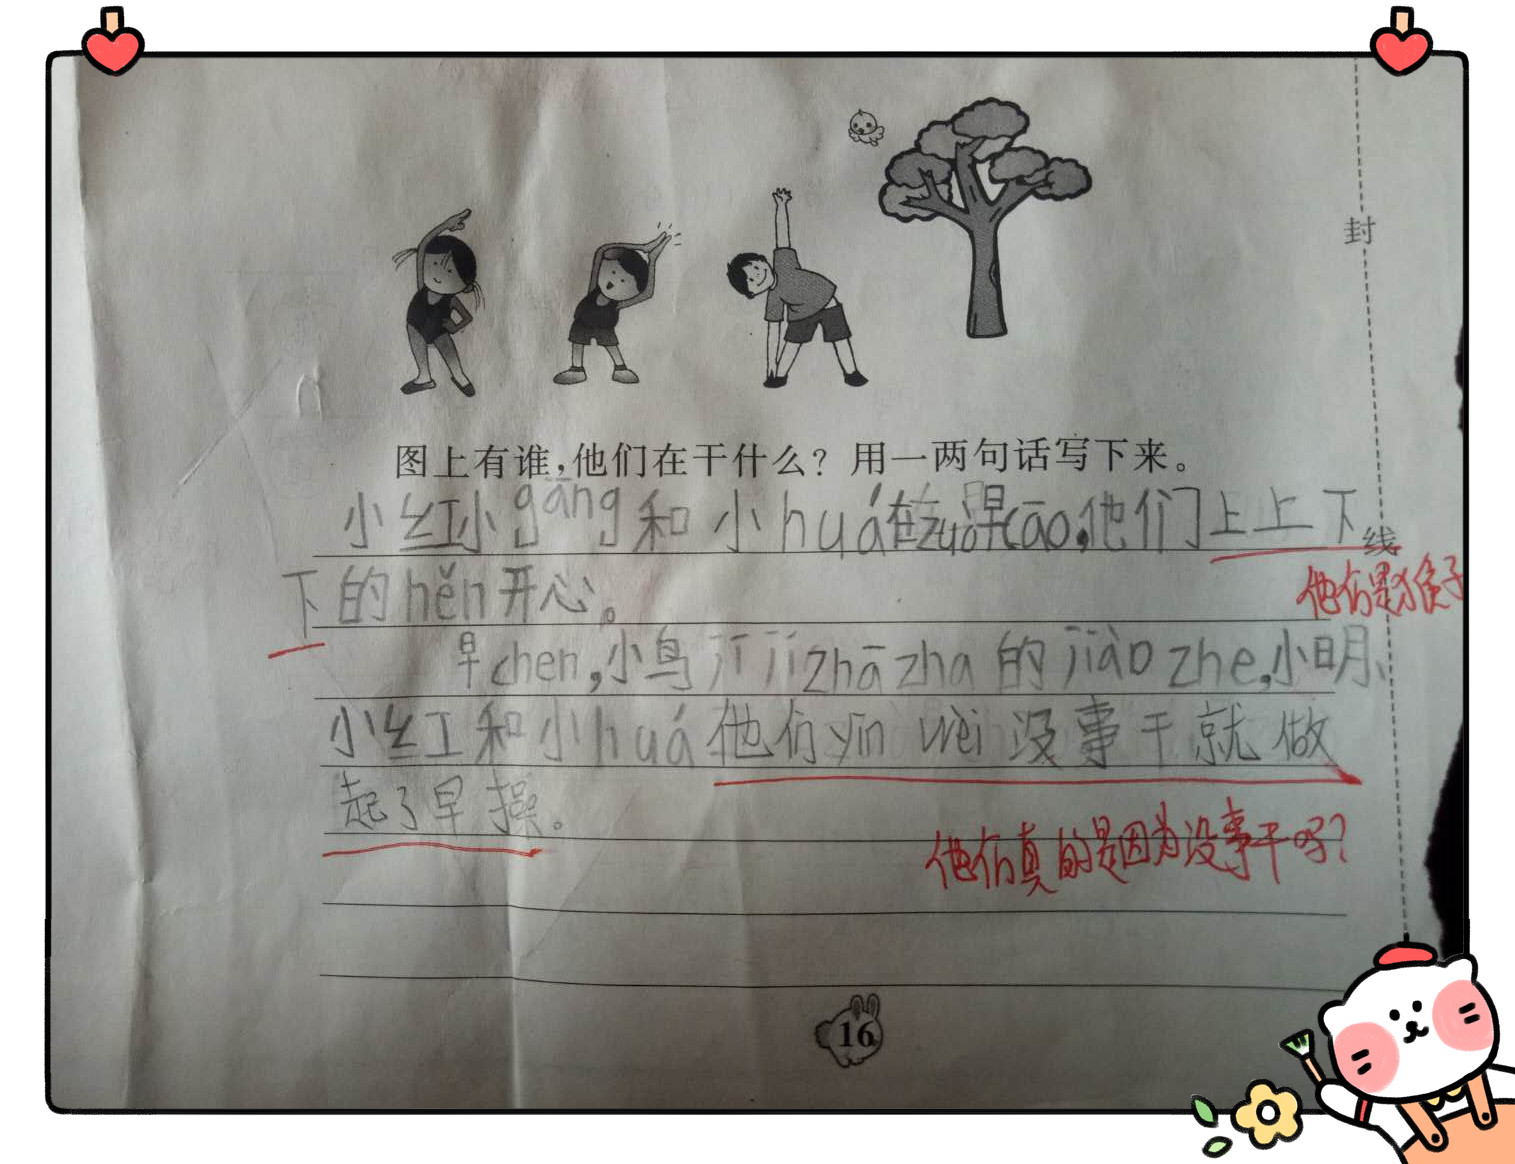 封
图上有谁,他们在干什么?用一两句话写下来。
小红小gāng和小huá在zuò早cāo,他们上上下
线
下的hěn开心。
他们是猴子
早chen,小鸟jījīzhāzha的jiàozhe,小明、
小红和小huá他们yīnwèi没事干就做
起了早操。
他们真的是因为没事干吗?
16